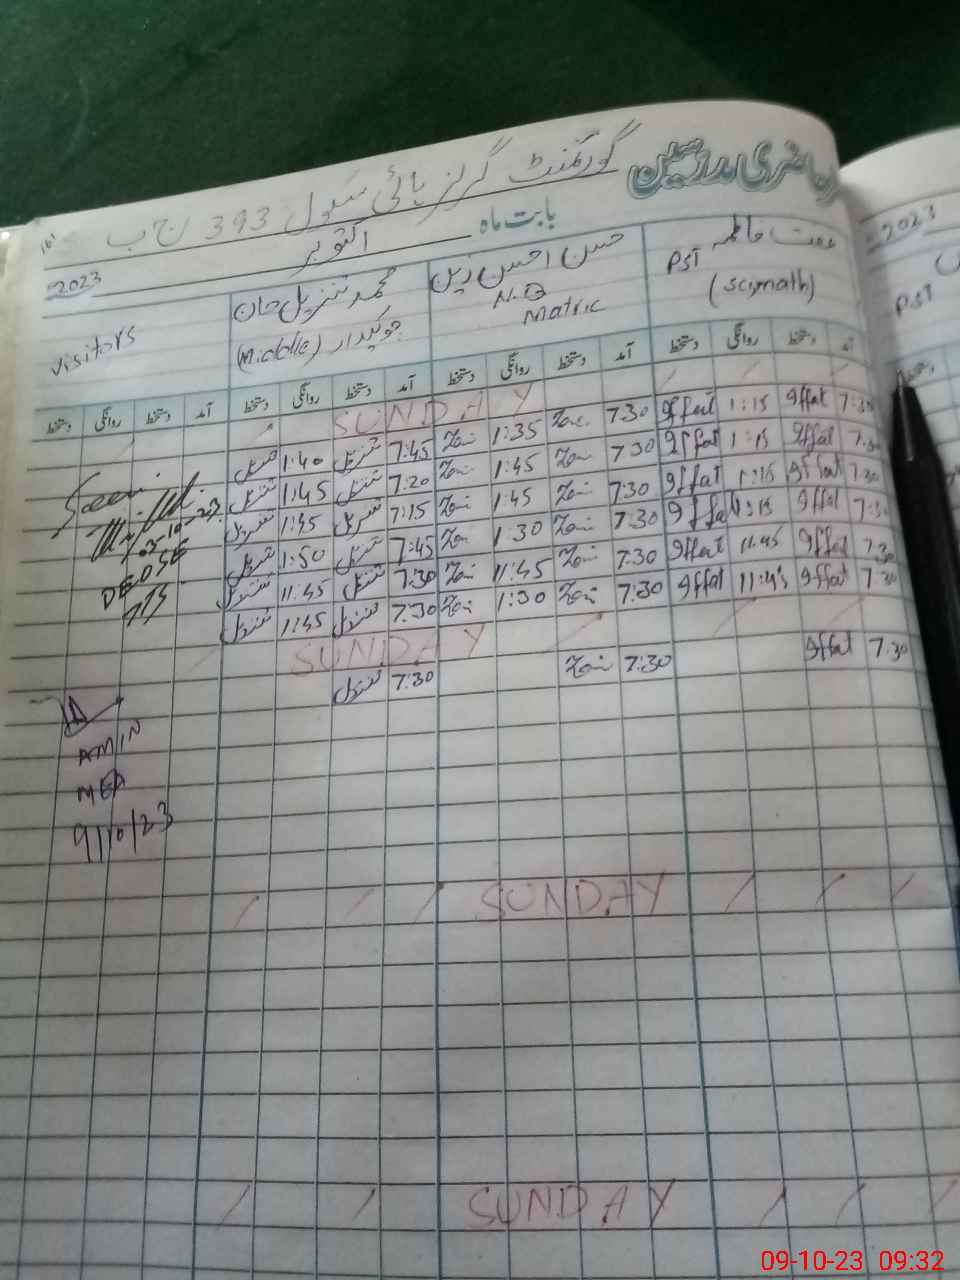 حاضری مدرسین گورنمنٹ گرلز ہائی سکول 393 ج ب
بابت ماہ اکتوبر 2023
عفت فاطمہ PST (sci,math)
حسن احسن زین N.Q Matric
محمد تنزیل خان چوکیدار (Middle)
visitors
آمد دستخط روانگی دستخط آمد دستخط روانگی دستخط آمد دستخط روانگی دستخط آمد دستخط روانگی دستخط
SUNDAY
7:30 Iffat 1:15 Iffat 7:30 Zain 1:35 Zain 7:45 تنزیل 1:40 تنزیل
7:30 Iffat 1:15 Iffat 7:30 Zain 1:45 Zain 7:20 تنزیل 1:45 تنزیل
7:30 Iffat 1:15 Iffat 7:30 Zain 1:45 Zain 7:15 تنزیل 1:45 تنزیل
7:30 Iffat 1:15 Iffat 7:30 Zain 1:30 Zain 7:45 تنزیل 1:50 تنزیل
7:30 Iffat 11:45 Iffat 7:30 Zain 11:45 Zain 7:30 تنزیل 11:45 تنزیل
7:30 Iffat 11:45 Iffat 7:30 Zain 1:30 Zain 7:30 تنزیل 1:45 تنزیل
DEO SE
SUNDAY
7:30 Iffat 7:30 Zain 7:30 تنزیل
AMIN
MEA
9/10/23
SUNDAY
SUNDAY
2023
PST
09-10-23 09:32